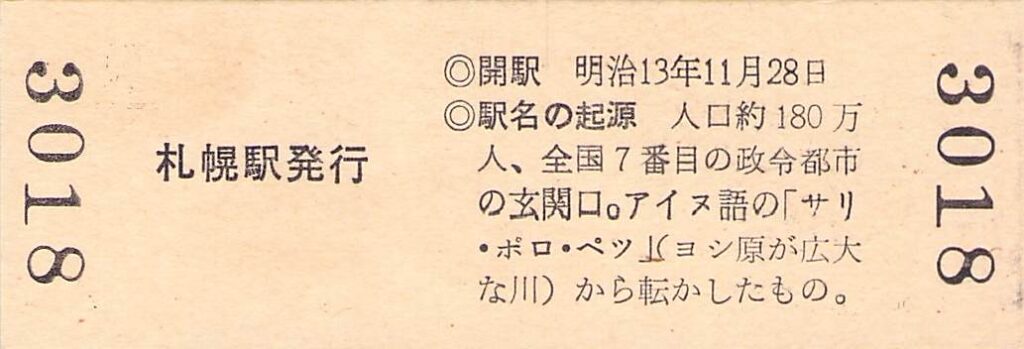 3018
札幌駅発行
◎開駅　明治13年11月28日
◎駅名の起源　人口約180万
人、全国7番目の政令都市
の玄関口。アイヌ語の「サリ
・ポロ・ペツ」（ヨシ原が広大
な川）から転かしたもの。
3018